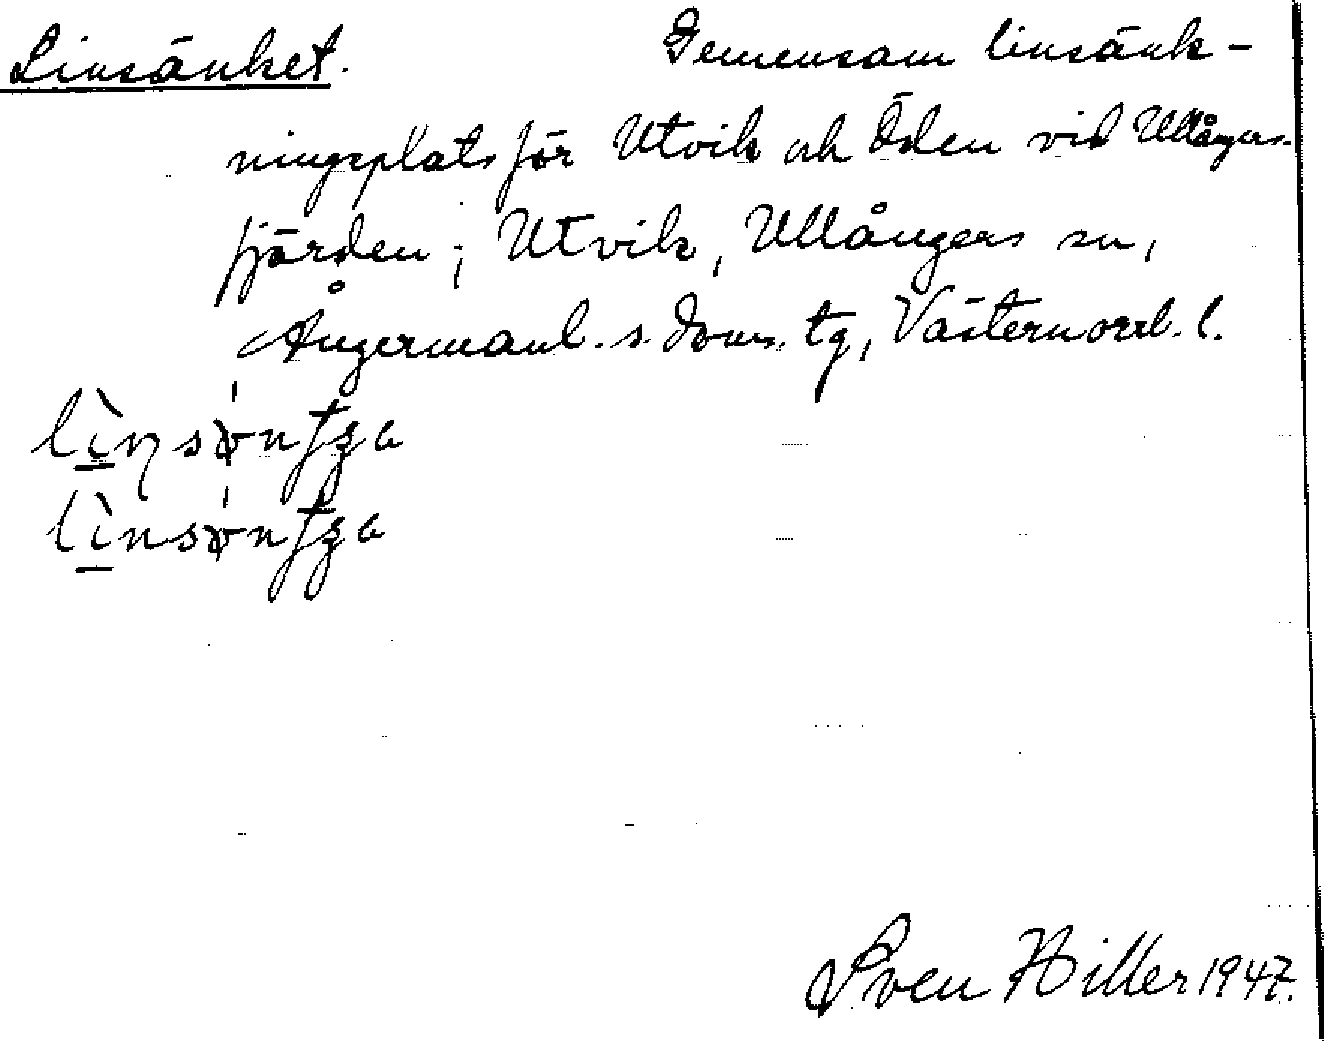 Linsänket. Gemensam linsänk-
ningsplats för Utvik och Öden vid Ullångers-
fjärden; Utvik, Ullångers sn,
Ångermanl. s. doms. tg, Västernorrl. l.
Sven Hiller 1947.